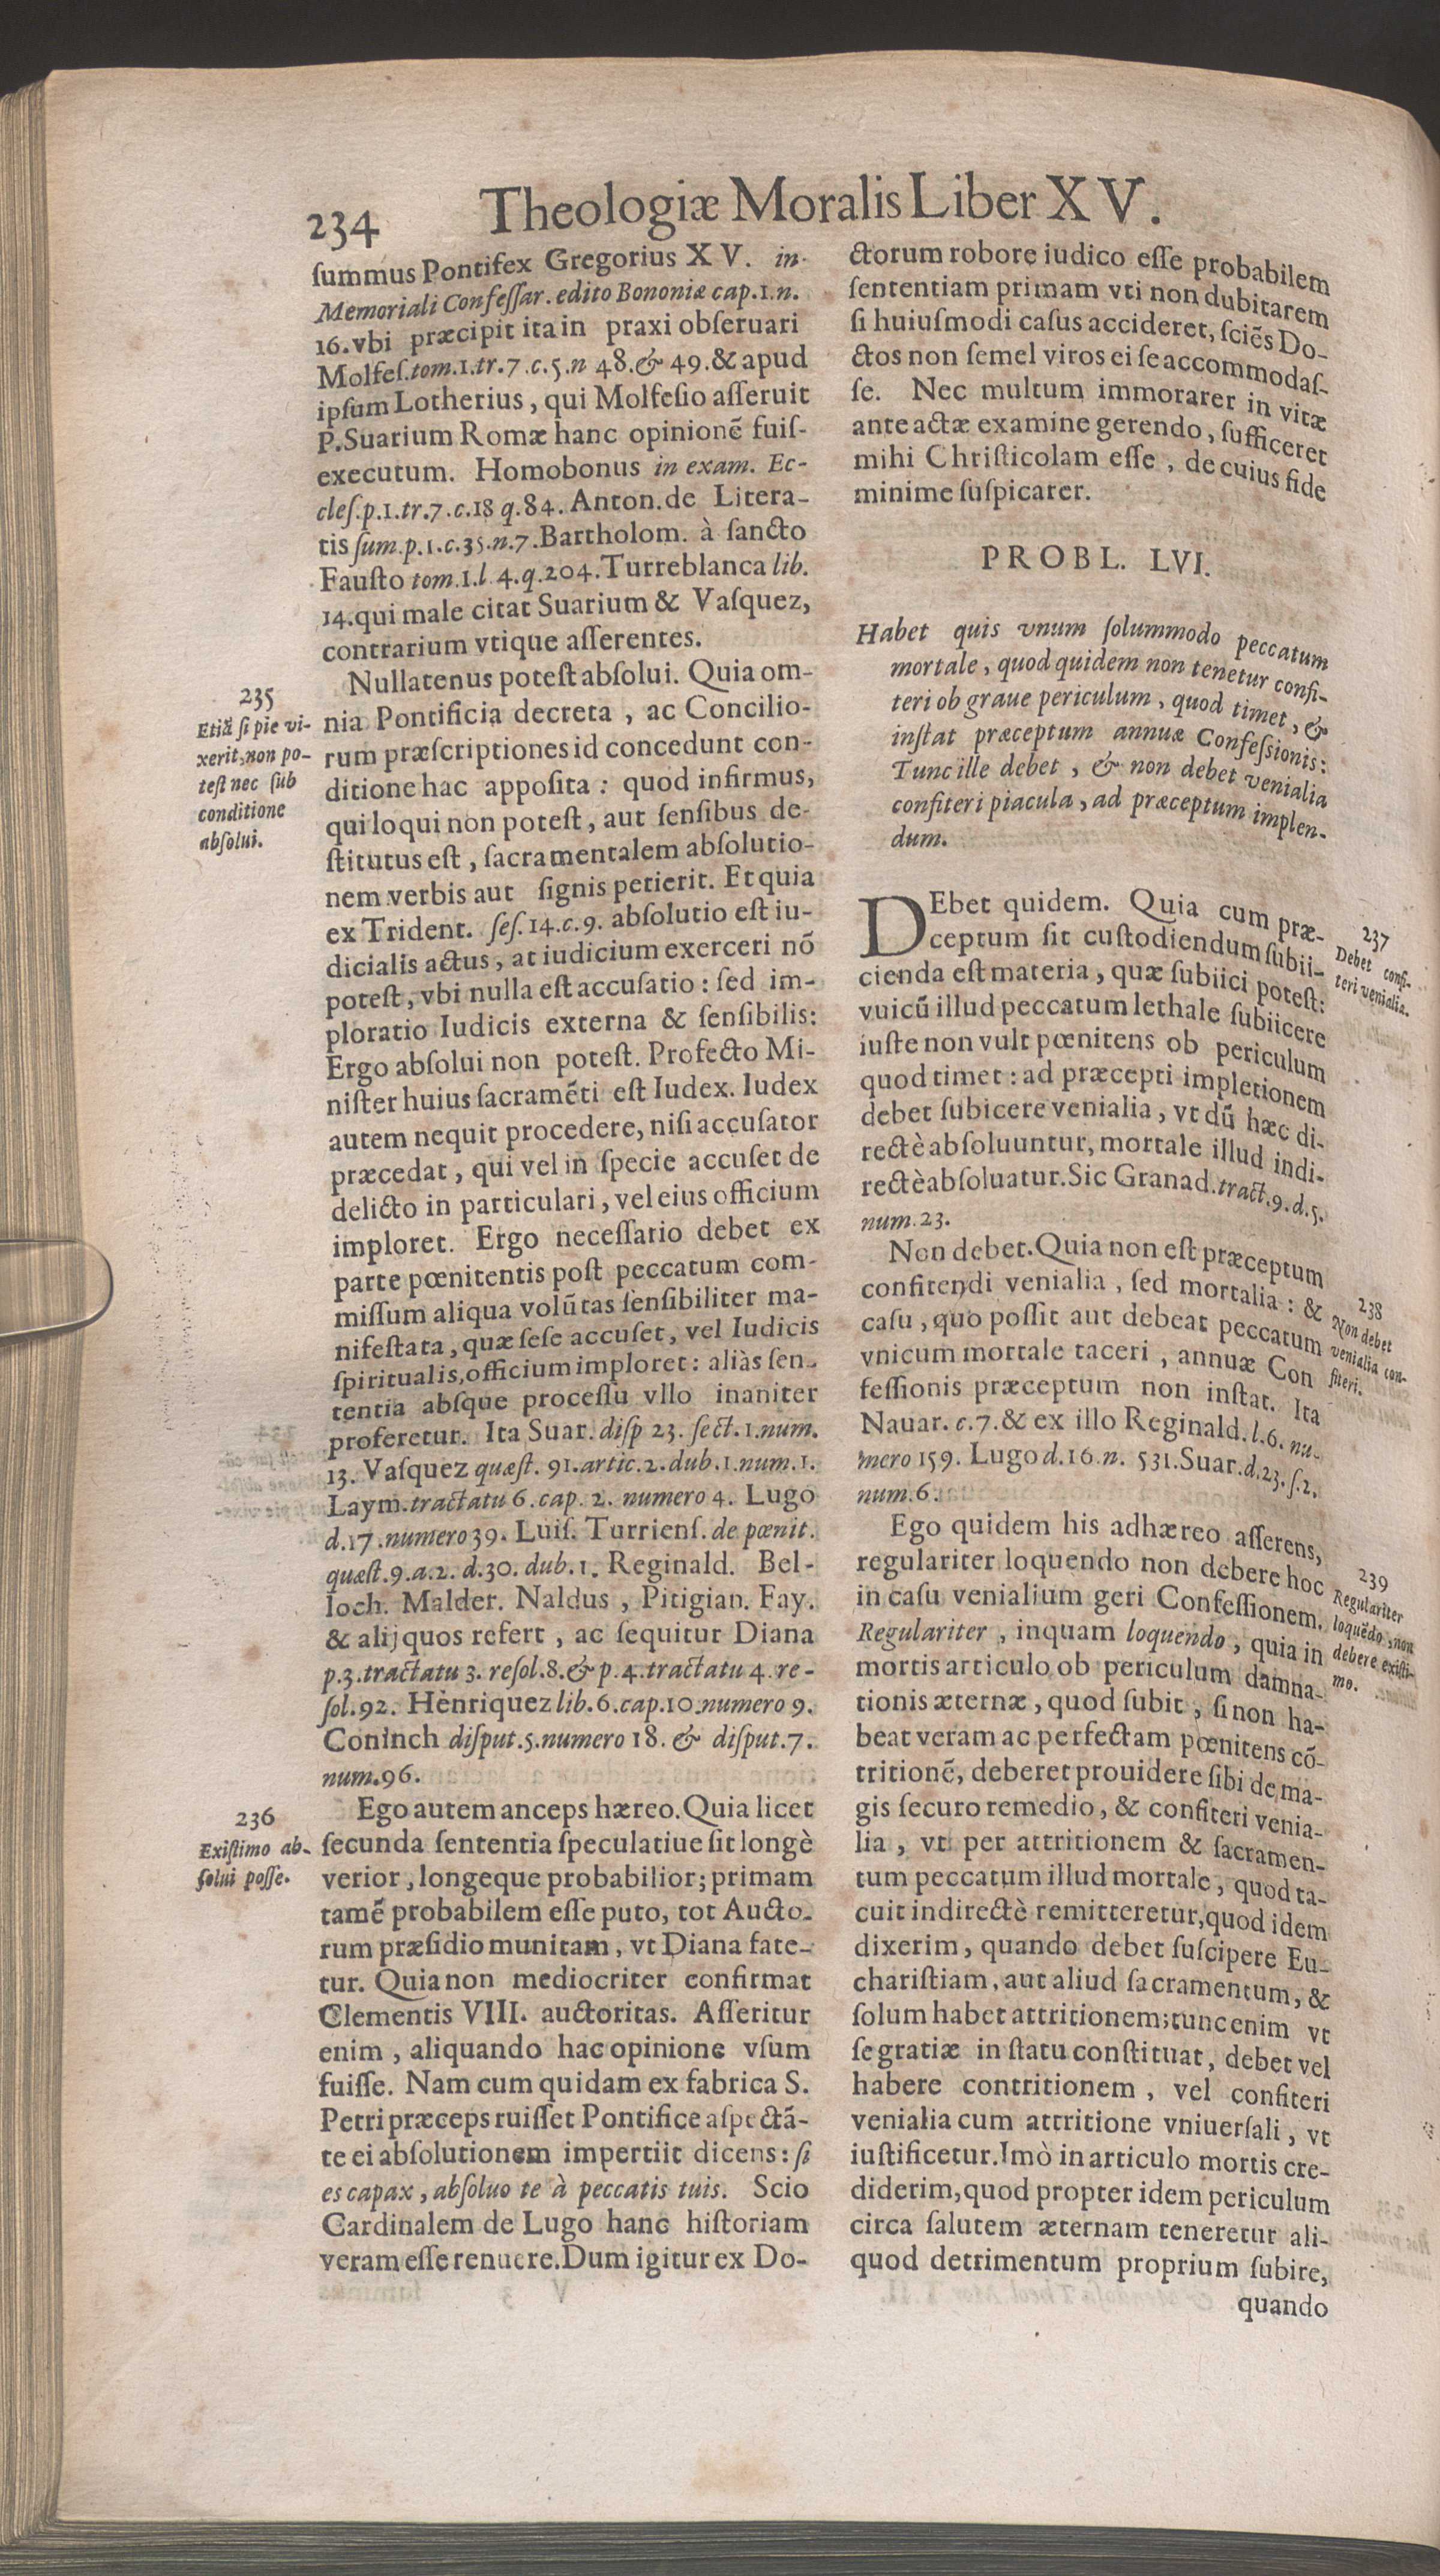 234 Theologiæ Moralis Liber XV.
ſummus Pontifex Gregorius XV. in
Memoriali Confeſſar. edito Bononiæ cap.1.n.
16.vbi præcipit ita in praxi obſeruari
Molfeſ.tom.1.tr.7.c.5.n 48.& 49.& apud
ipſum Lotherius, qui Molfeſio aſſeruit
P.Suarium Romæ hanc opinionẽ fuiſ-
executum. Homobonus in exam. Ec-
cleſ.p.1.tr.7.c.18 q.84. Anton.de Litera-
tis ſum.p.1.c.35.n.7.Bartholom. à ſancto
Fauſto tom.1.l.4.q.204.Turreblanca lib.
14.qui male citat Suarium & Vaſquez,
contrarium vtique aſſerentes.
235
Etiã ſi pie vi-
xerit, non po-
teſt nec ſub
conditione
abſolui.
Nullatenus poteſt abſolui. Quia om-
nia Pontificia decreta, ac Concilio-
rum præſcriptiones id concedunt con-
ditione hac appoſita: quod infirmus,
qui loqui non poteſt, aut ſenſibus de-
ſtitutus eſt, ſacramentalem abſolutio-
nem verbis aut ſignis petierit. Et quia
ex Trident. ſeſ.14.c.9. abſolutio eſt iu-
dicialis actus, at iudicium exerceri nõ
poteſt, vbi nulla eſt accuſatio: ſed im-
ploratio Iudicis externa & ſenſibilis:
Ergo abſolui non poteſt. Profecto Mi-
niſter huius ſacramẽti eſt Iudex. Iudex
autem nequit procedere, niſi accuſator
præcedat, qui vel in ſpecie accuſet de
delicto in particulari, vel eius officium
imploret. Ergo neceſſario debet ex
parte pœnitentis poſt peccatum com-
miſſum aliqua volũtas ſenſibiliter ma-
nifeſtata, quæ ſeſe accuſet, vel Iudicis
ſpiritualis, officium imploret: aliàs ſen-
tentia abſque proceſſu vllo inaniter
proferetur. Ita Suar. diſp 23. ſect.1.num.
13. Vaſquez quæſt. 91.artic.2.dub.1.num.1.
Laym.tractatu 6.cap. 2. numero 4. Lugo
d.17.numero 39. Luiſ. Turrienſ. de pœnit.
quæſt.9.a.2. d.30. dub.1. Reginald. Bel-
loch. Malder. Naldus, Pitigian. Fay.
& alij quos refert, ac ſequitur Diana
p.3.tractatu 3. reſol.8.& p.4.tractatu 4.re-
ſol.92. Hènriquez lib.6.cap.10.numero 9.
Coninch diſput.5.numero 18. & diſput.7.
num.96.
236
Exiſtimo ab-
ſolui poſſe.
Ego autem anceps hæreo. Quia licet
ſecunda ſententia ſpeculatiue ſit longè
verior, longeque probabilior; primam
tamẽ probabilem eſſe puto, tot Aucto-
rum præſidio munitam, vt Diana fate-
tur. Quia non mediocriter confirmat
Clementis VIII. auctoritas. Aſſeritur
enim, aliquando hac opinione vſum
fuiſſe. Nam cum quidam ex fabrica S.
Petri præceps ruiſſet Pontifice aſpectã-
te ei abſolutionem impertiit dicens: ſi
es capax, abſoluo te à peccatis tuis. Scio
Cardinalem de Lugo hanc hiſtoriam
veram eſſe renuere. Dum igitur ex Do-
ctorum robore iudico eſſe probabilem
ſententiam primam vti non dubitarem
ſi huiuſmodi caſus accideret, ſciẽs Do-
ctos non ſemel viros ei ſe accommodaſ-
ſe. Nec multum immorarer in vitæ
ante actæ examine gerendo, ſufficeret
mihi Chriſticolam eſſe, de cuius fide
minime ſuſpicarer.
PROBL. LVI.
Habet quis vnum ſolummodo peccatum
mortale, quod quidem non tenetur confi-
teri ob graue periculum, quod timet, &
inſtat præceptum annuæ Confeſſionis:
Tunc ille debet, & non debet venialia
confiteri piacula, ad præceptum implen-
dum.
DEbet quidem. Quia cum præ-
ceptum ſit cuſtodiendum ſubii-
cienda eſt materia, quæ ſubiici poteſt:
vuicũ illud peccatum lethale ſubiicere
iuſte non vult pœnitens ob periculum
quod timet: ad præcepti impletionem
debet ſubicere venialia, vt dũ hæc di-
rectè abſoluuntur, mortale illud indi-
rectè abſoluatur. Sic Granad.tract.9.d.5.
num.23.
237
Debet confi-
teri venialia.
Non debet. Quia non eſt præceptum
confitendi venialia, ſed mortalia: &
caſu, quo poſſit aut debeat peccatum
vnicum mortale taceri, annuæ Con
feſſionis præceptum non inſtat. Ita
Nauar. c.7.& ex illo Reginald.l.6. nu-
mero 159. Lugo d.16.n. 531.Suar.d.23.ſ.2.
num.6.
238
Non debet
venialia con-
fiteri.
Ego quidem his adhæreo aſſerens,
regulariter loquendo non debere hoc
in caſu venialium geri Confeſſionem.
Regulariter, inquam loquendo, quia in
mortis articulo ob periculum damna-
tionis æternæ, quod ſubit, ſi non ha-
beat veram ac perfectam pœnitens cõ-
tritionẽ, deberet prouidere ſibi de ma-
gis ſecuro remedio, & confiteri venia-
lia, vt per attritionem & ſacramen-
tum peccatum illud mortale, quod ta-
cuit indirectè remitteretur, quod idem
dixerim, quando debet ſuſcipere Eu-
chariſtiam, aut aliud ſacramentum, &
ſolum habet attritionem; tunc enim vt
ſe gratiæ in ſtatu conſtituat, debet vel
habere contritionem, vel confiteri
venialia cum attritione vniuerſali, vt
iuſtificetur. Imò in articulo mortis cre-
diderim, quod propter idem periculum
circa ſalutem æternam teneretur ali-
quod detrimentum proprium ſubire,
239
Regulariter
loquẽdo, non
debere exiſti-
mo.
quando